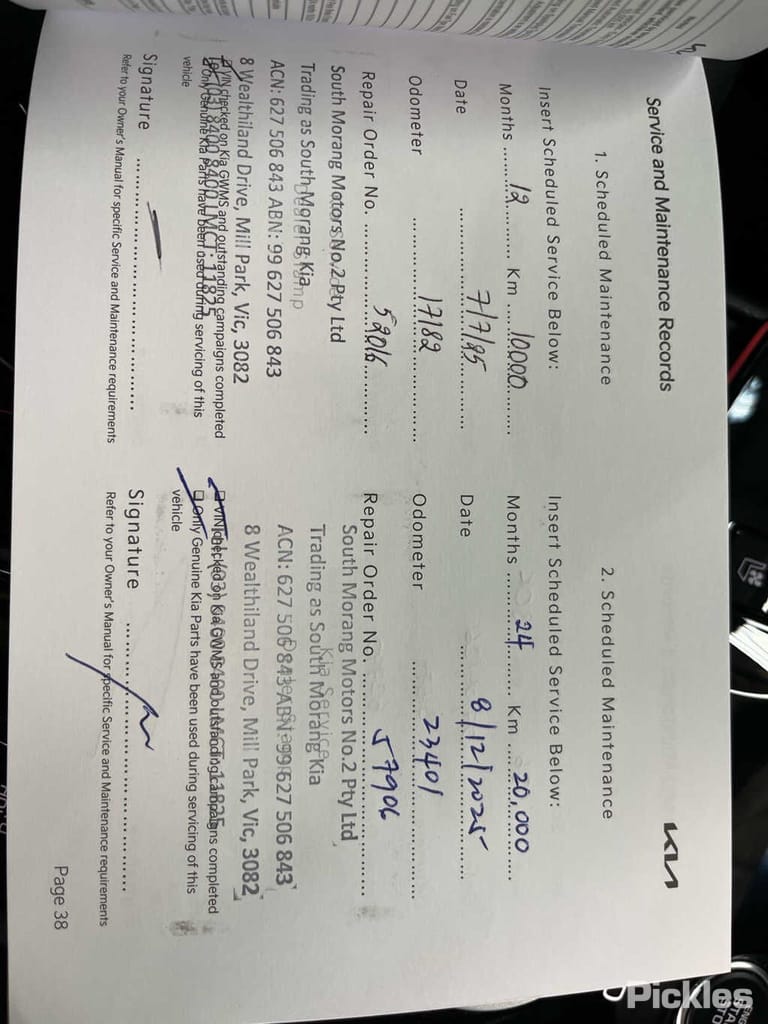 Service and Maintenance Records
KIA
1. Scheduled Maintenance
Insert Scheduled Service Below:
Months ...12... Km ...10000...
Date ...7/7/25...
Odometer ...17182...
Repair Order No. ...52016...
South Morang Motors No.2 Pty Ltd
Trading as South Morang Kia
ACN: 627 506 843 ABN: 99 627 506 843
8 Wealthiland Drive, Mill Park, Vic, 3082
Tel: (03) 8400 8400 LMCT: 11825
VIN checked on Kia GWMS and outstanding campaigns completed
Only Genuine Kia Parts have been used during servicing of this
vehicle
Signature ...
Refer to your Owner's Manual for specific Service and Maintenance requirements
2. Scheduled Maintenance
Insert Scheduled Service Below:
Months ...24... Km ...20,000...
Date ...8/12/2025...
Odometer ...23401...
Repair Order No. ...57906...
South Morang Motors No.2 Pty Ltd
Kia Service
Trading as South Morang Kia
ACN: 627 506 843 ABN: 99 627 506 843
8 Wealthiland Drive, Mill Park, Vic, 3082
VIN checked on Kia GWMS and outstanding campaigns completed
Only Genuine Kia Parts have been used during servicing of this
vehicle
Signature ...
Refer to your Owner's Manual for specific Service and Maintenance requirements
Page 38
Pickles